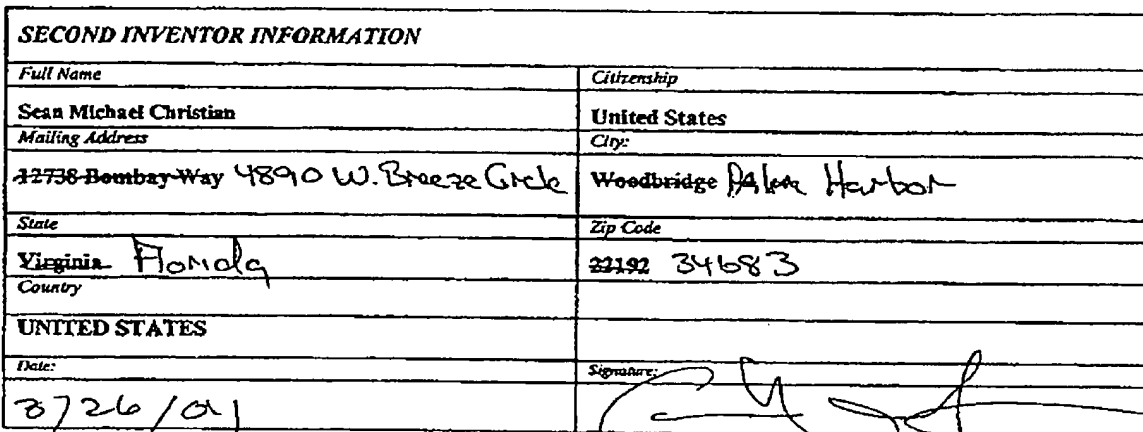 SECOND INVENTOR INFORMATION
Full Name Citizenship
Sean Michael Christian United States
Mailing Address City:
12738 Bombay Way 4890 W. Breeze Circle Woodbridge Palm Harbor
State Zip Code
Virginia Florida 22192 34683
Country
UNITED STATES
Date: Signature: